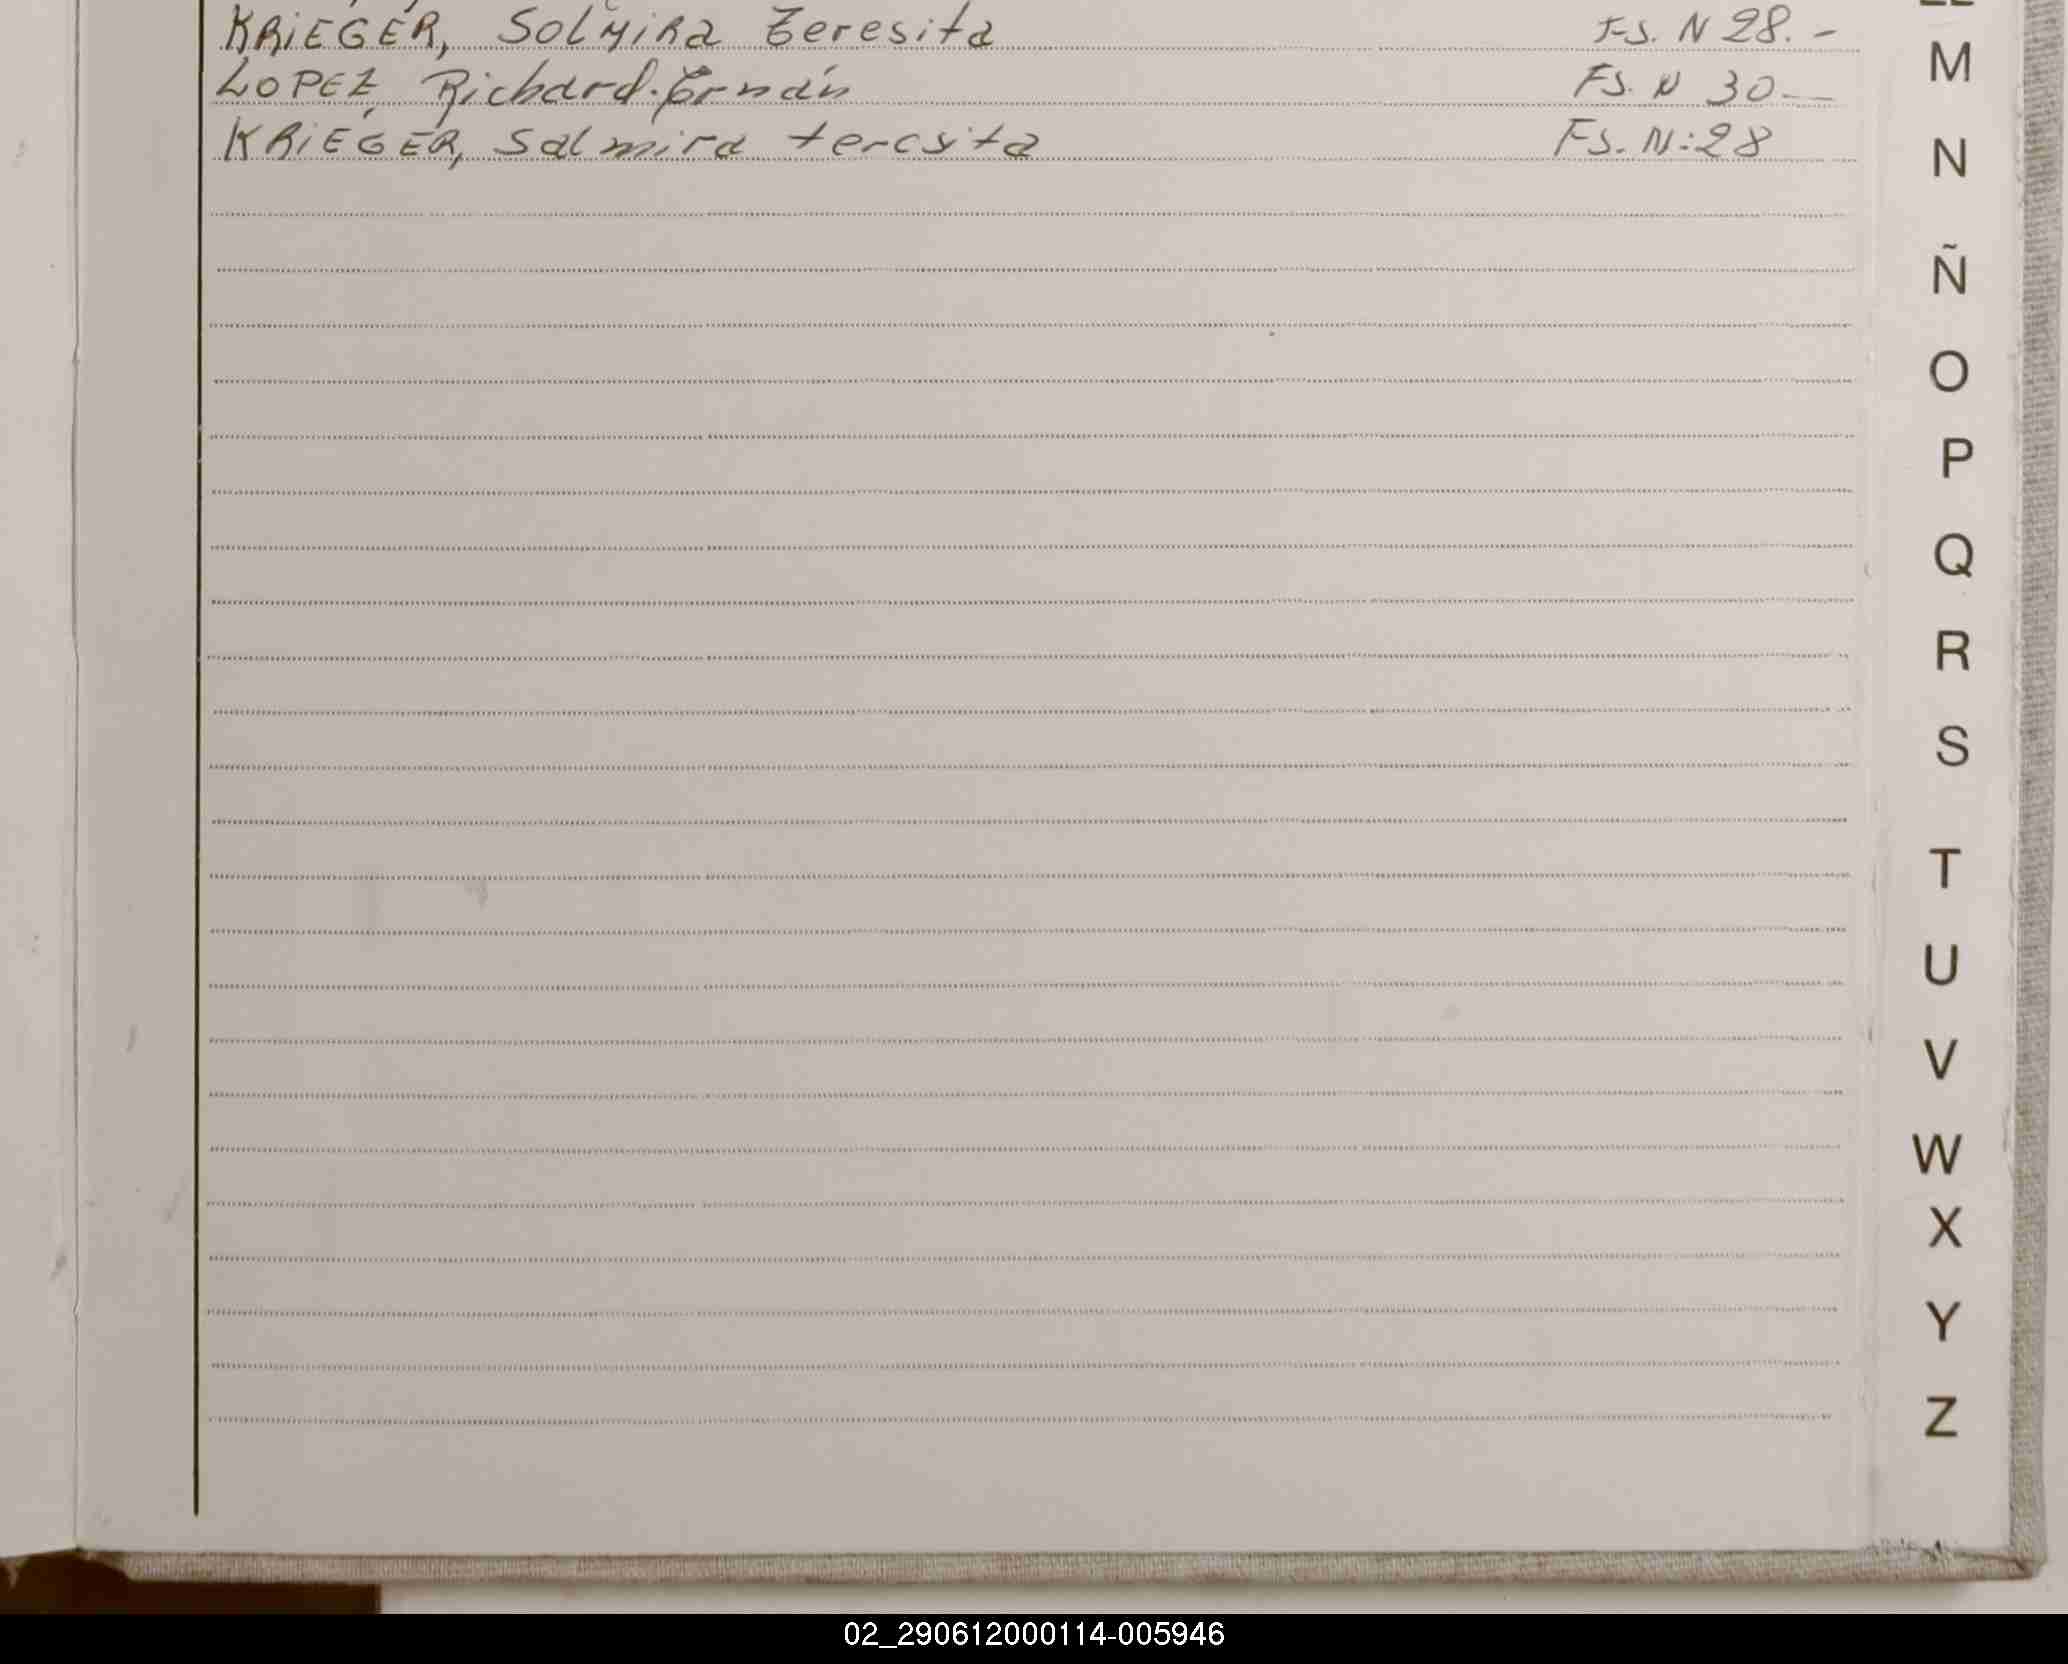 KRiEGER, Solmira Teresita FS. N 28.-
LOPEZ, Richard. Ernán FS. N 30-
KRiEGER, Salmira teresita FS. N:28
LL
M
N
Ñ
O
P
Q
R
S
T
U
V
W
X
Y
Z
02_290612000114-005946